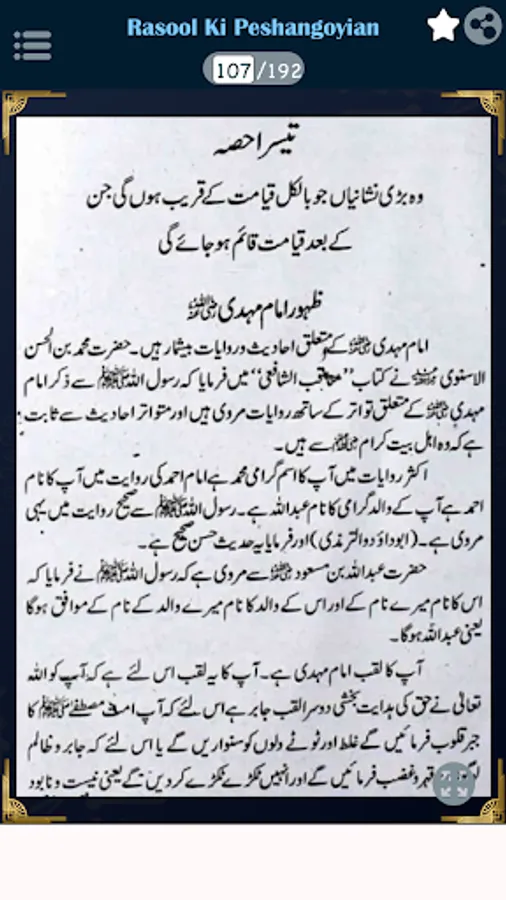 Rasool Ki Peshangoyian
107/192
تیسرا حصہ
وہ بڑی نشانیاں جو بالکل قیامت کے قریب ہوں گی جن
کے بعد قیامت قائم ہو جائے گی
ظہور امام مہدی رضی اللہ عنہ
امام مہدی رضی اللہ عنہ کے متعلق احادیث و روایات بیشمار ہیں۔ حضرت محمد بن الحسن
الاسنوی نے کتاب "مناقب الشافعی" میں فرمایا کہ رسول اللہ ﷺ سے ذکر امام
مہدی کے متعلق تواتر کے ساتھ روایات مروی ہیں اور متواتر احادیث سے ثابت
ہے کہ وہ اہل بیت کرام سے ہیں۔
اکثر روایات میں آپ کا اسم گرامی محمد ہے امام احمد کی روایت میں آپ کا نام
احمد ہے آپ کے والد گرامی کا نام عبداللہ ہے۔ رسول اللہ ﷺ سے صحیح روایت میں یہی
مروی ہے۔ (ابوداؤد والترمذی) اور فرمایا یہ حدیث حسن صحیح ہے۔
حضرت عبداللہ بن مسعود سے مروی ہے کہ رسول اللہ ﷺ نے فرمایا کہ
اس کا نام میرے نام کے اور اس کے والد کا نام میرے والد کے نام کے موافق ہوگا
یعنی عبداللہ ہوگا۔
آپ کا لقب امام مہدی ہے۔ آپ کا یہ لقب اس لئے ہے کہ آپ کو اللہ
تعالیٰ نے حق کی ہدایت بخشی دوسرا لقب جابر ہے اس لئے کہ آپ امت مصطفےٰ ﷺ کا
جبر قلوب فرمائیں گے غلط اور ٹوٹے دلوں کو سنواریں گے یا اس لئے کہ جابر و ظالم
قہر و غضب فرمائیں گے اور انہیں ٹکڑے ٹکڑے کر دیں گے یعنی نیست و نابود